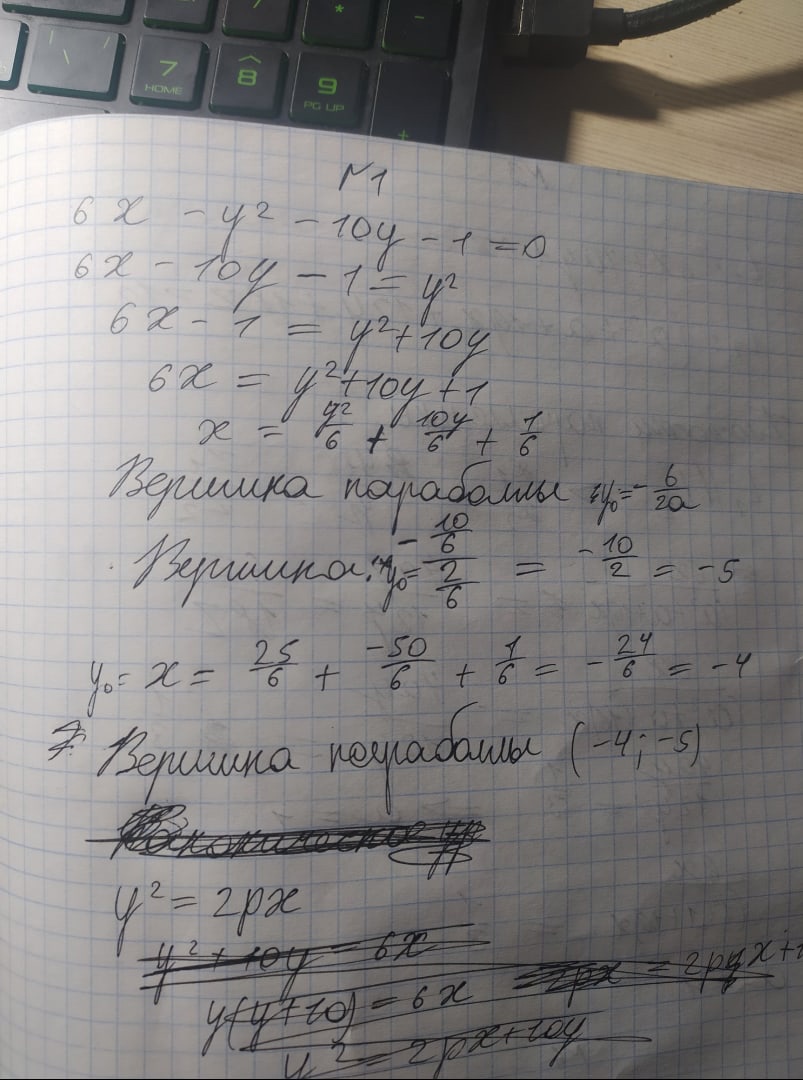 *
-
7
HOME
8
9
PG UP
+
№1
6x - y² - 10y - 1 = 0
6x - 10y - 1 = y²
6x - 1 = y² + 10y
6x = y² + 10y + 1
x = y²/6 + 10y/6 + 1/6
Вершина параболы y₀ = - в/2a
Вершина: y₀ = (-10/6)/(2/6) = -10/2 = -5
y₀ = x = 25/6 + -50/6 + 1/6 = -24/6 = -4
Вершина параболы (-4; -5)
y² = 2px
y² + 10y = 6x
y(y+10) = 6x
y² = 2px + 10y